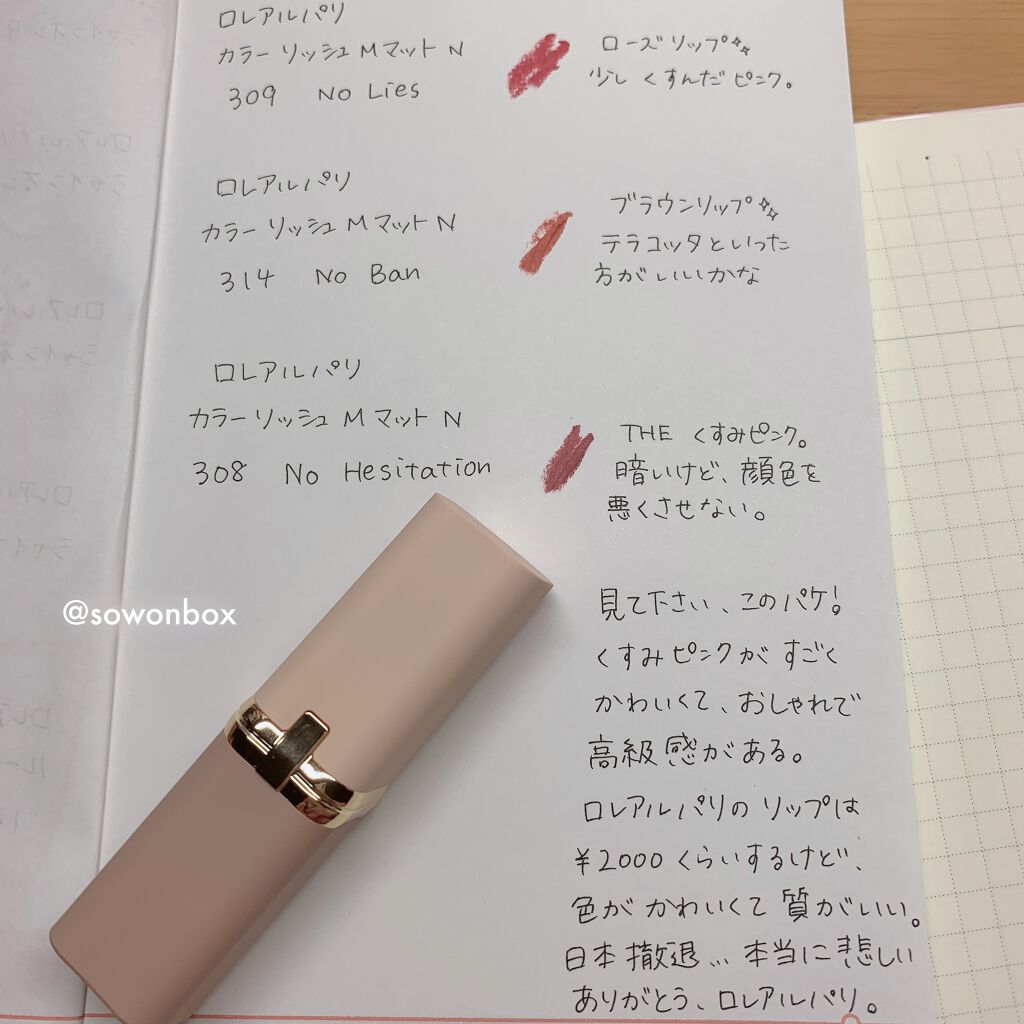 ロレアルパリ
カラーリッシュ M マット N
309 No Lies
ローズリップ
少しくすんだピンク。
ロレアルパリ
カラーリッシュ M マット N
314 No Ban
ブラウンリップ
テラコッタといった
方がいいかな
ロレアルパリ
カラーリッシュ M マット N
308 No Hesitation
THE くすみピンク。
暗いけど、顔色を
悪くさせない。
見て下さい、このパケ!
くすみピンクがすごく
かわいくて、おしゃれで
高級感がある。
ロレアルパリのリップは
¥2000くらいするけど、
色がかわいくて質がいい。
日本撤退... 本当に悲しい
ありがとう、ロレアルパリ。
@sowonbox